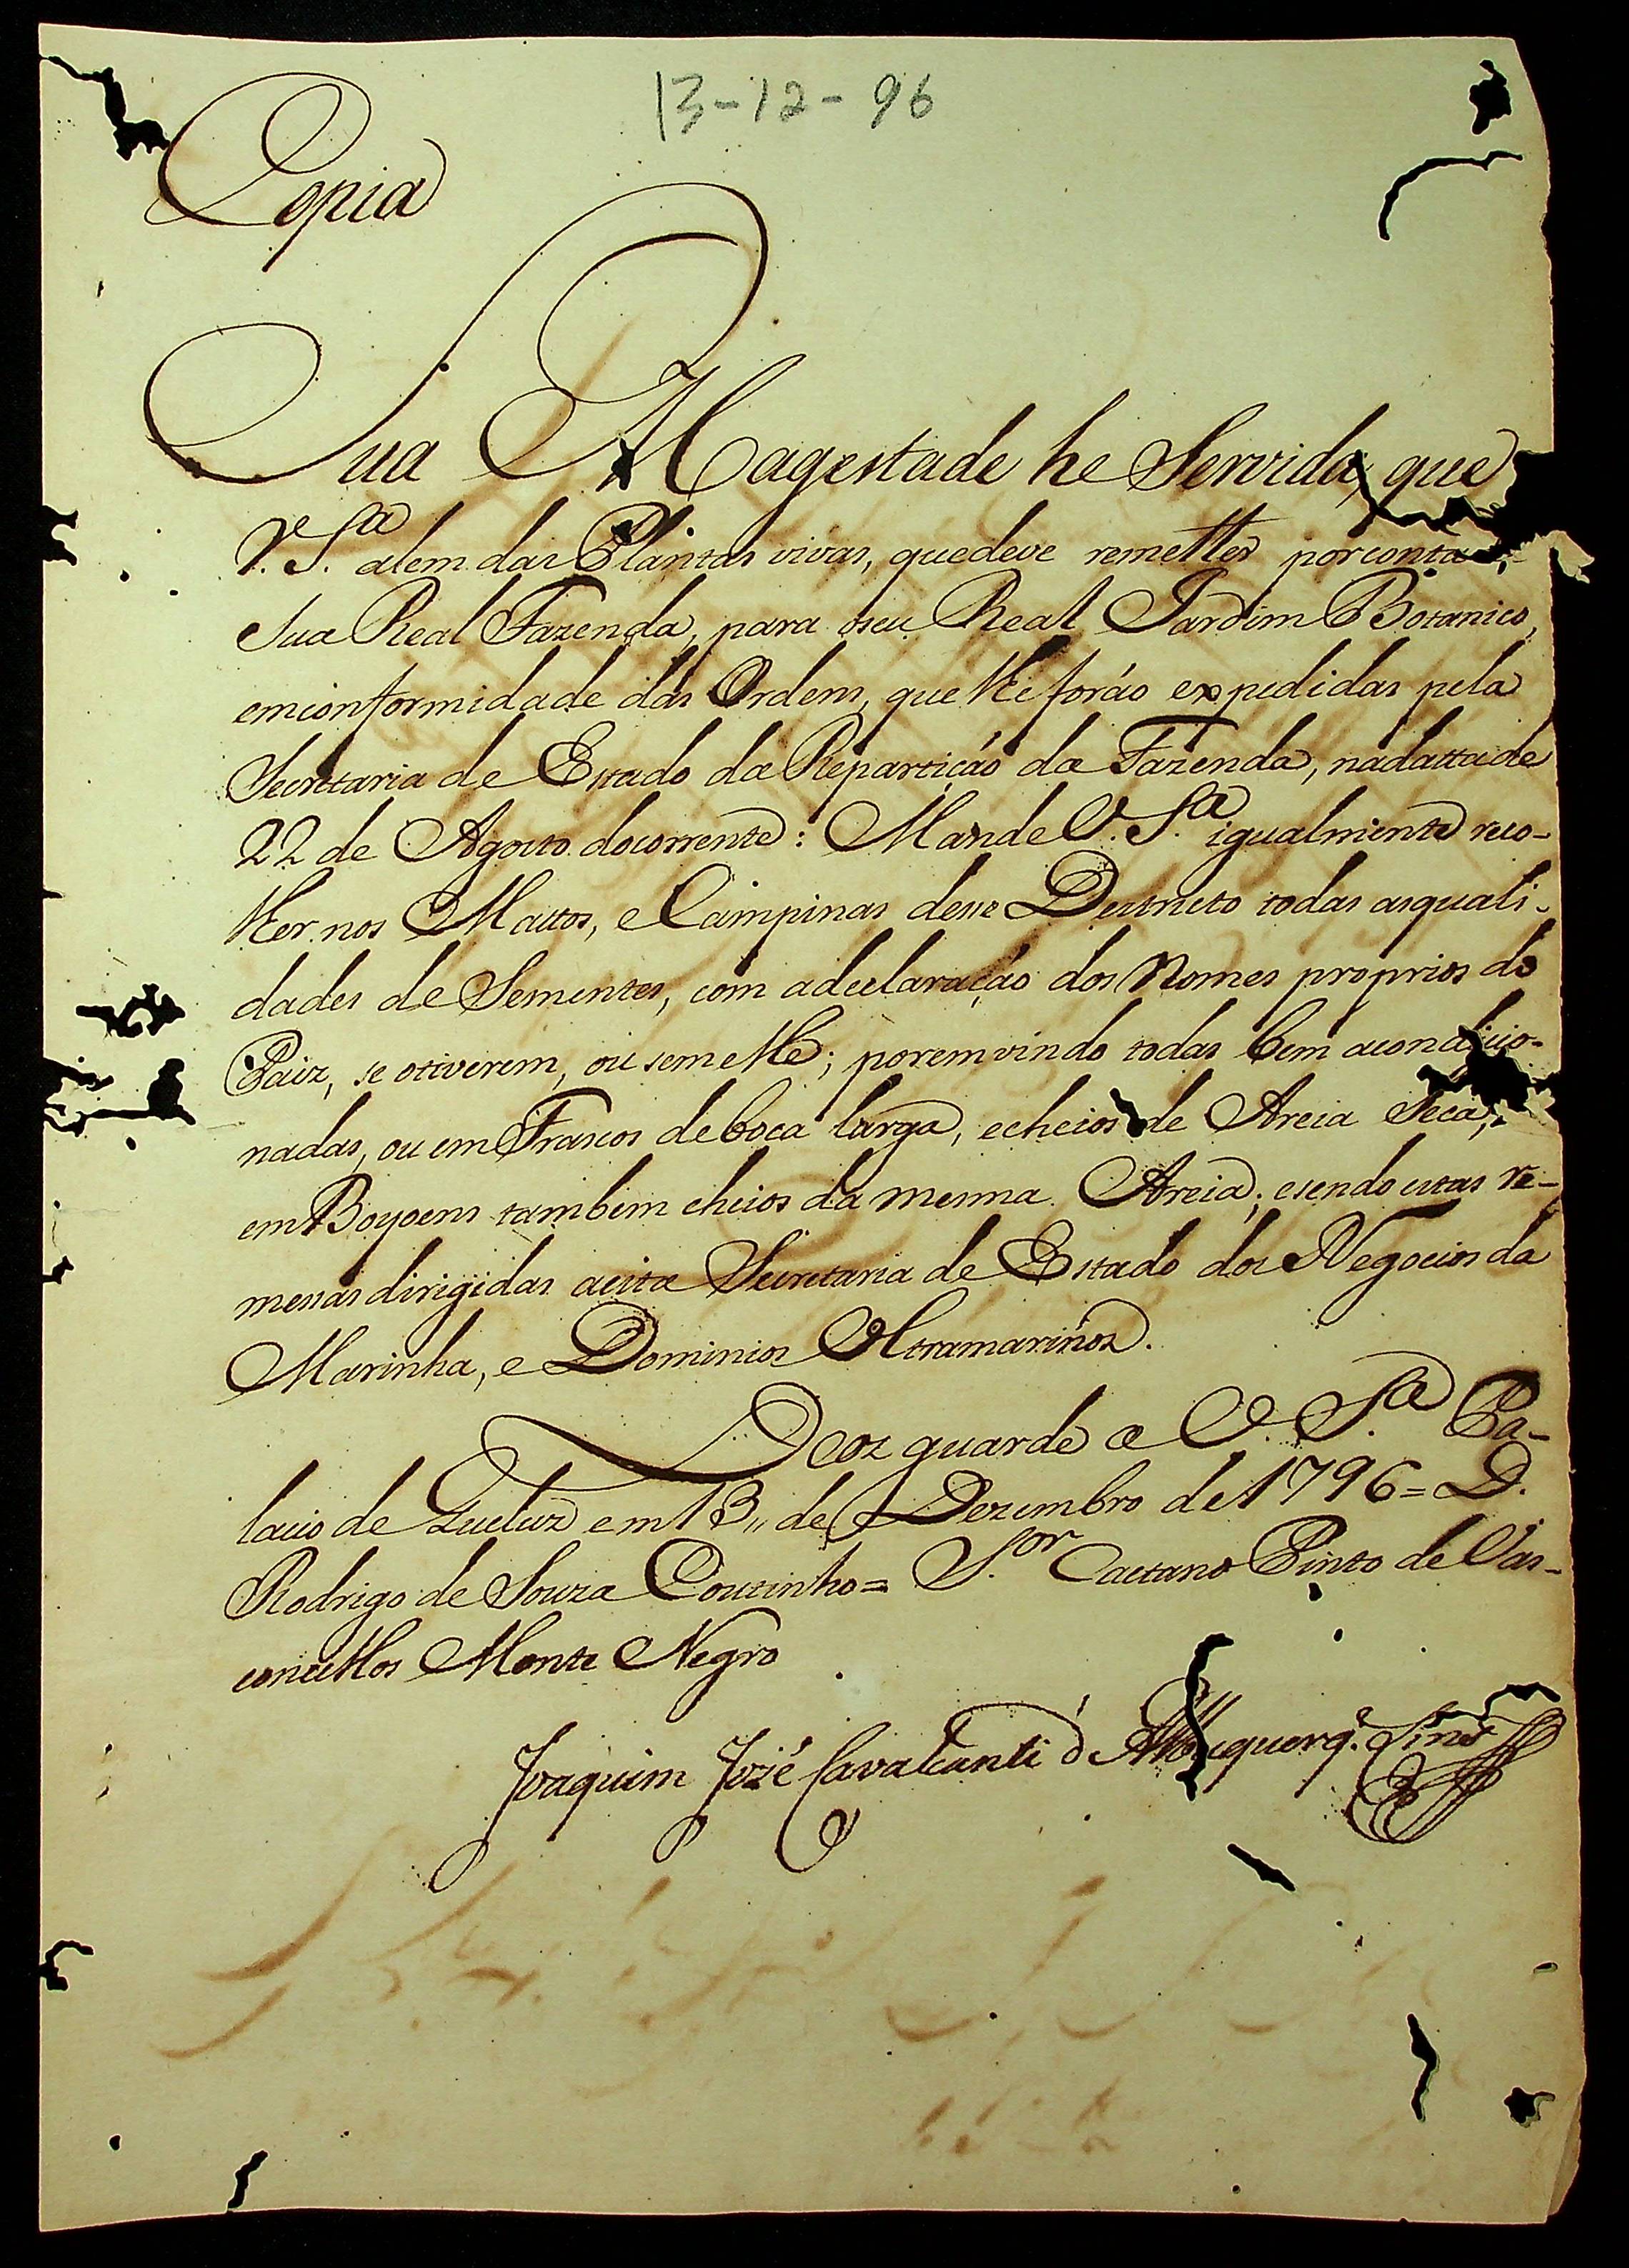 13-12-96
Copia
Sua Magestade he Servida, que
V. S.ª alem das Plantas vivas, que deve remetter por conta
Sua Real Fazenda, para o seu Real Jardim Botanico,
em conformidade das Ordens, que lhe forão expedidas pela
Secretaria de Estado da Repartição da Fazenda, na datta de
22 de Agosto do corrente: Mande V. S.ª igualmente reco-
lher nos Mattos, e Campinas desse Destricto todas as quali-
dades de Sementes, com a declaração dos Nomes proprios do
Paiz, se o tiverem, ou sem elle; porem vindo todas bem acondicio-
nadas, ou em Frascos de boca larga, e cheios de Areia Seca,
em Boyoens tambem cheios da mesma Areia; e sendo estas re-
mesas dirigidas a esta Secretaria de Estado dos Negocios da
Marinha, e Dominios Ultramarinos.
Deos guarde a V. S.ª Pa-
lacio de Queluz em 13,, de Dezembro de 1796 = D.
Rodrigo de Souza Coutinho = S.or Caetano Pinto de Vas-
concellos Monte Negro
Joaquim José Cavalcanti d' Albuquerq.e Lins